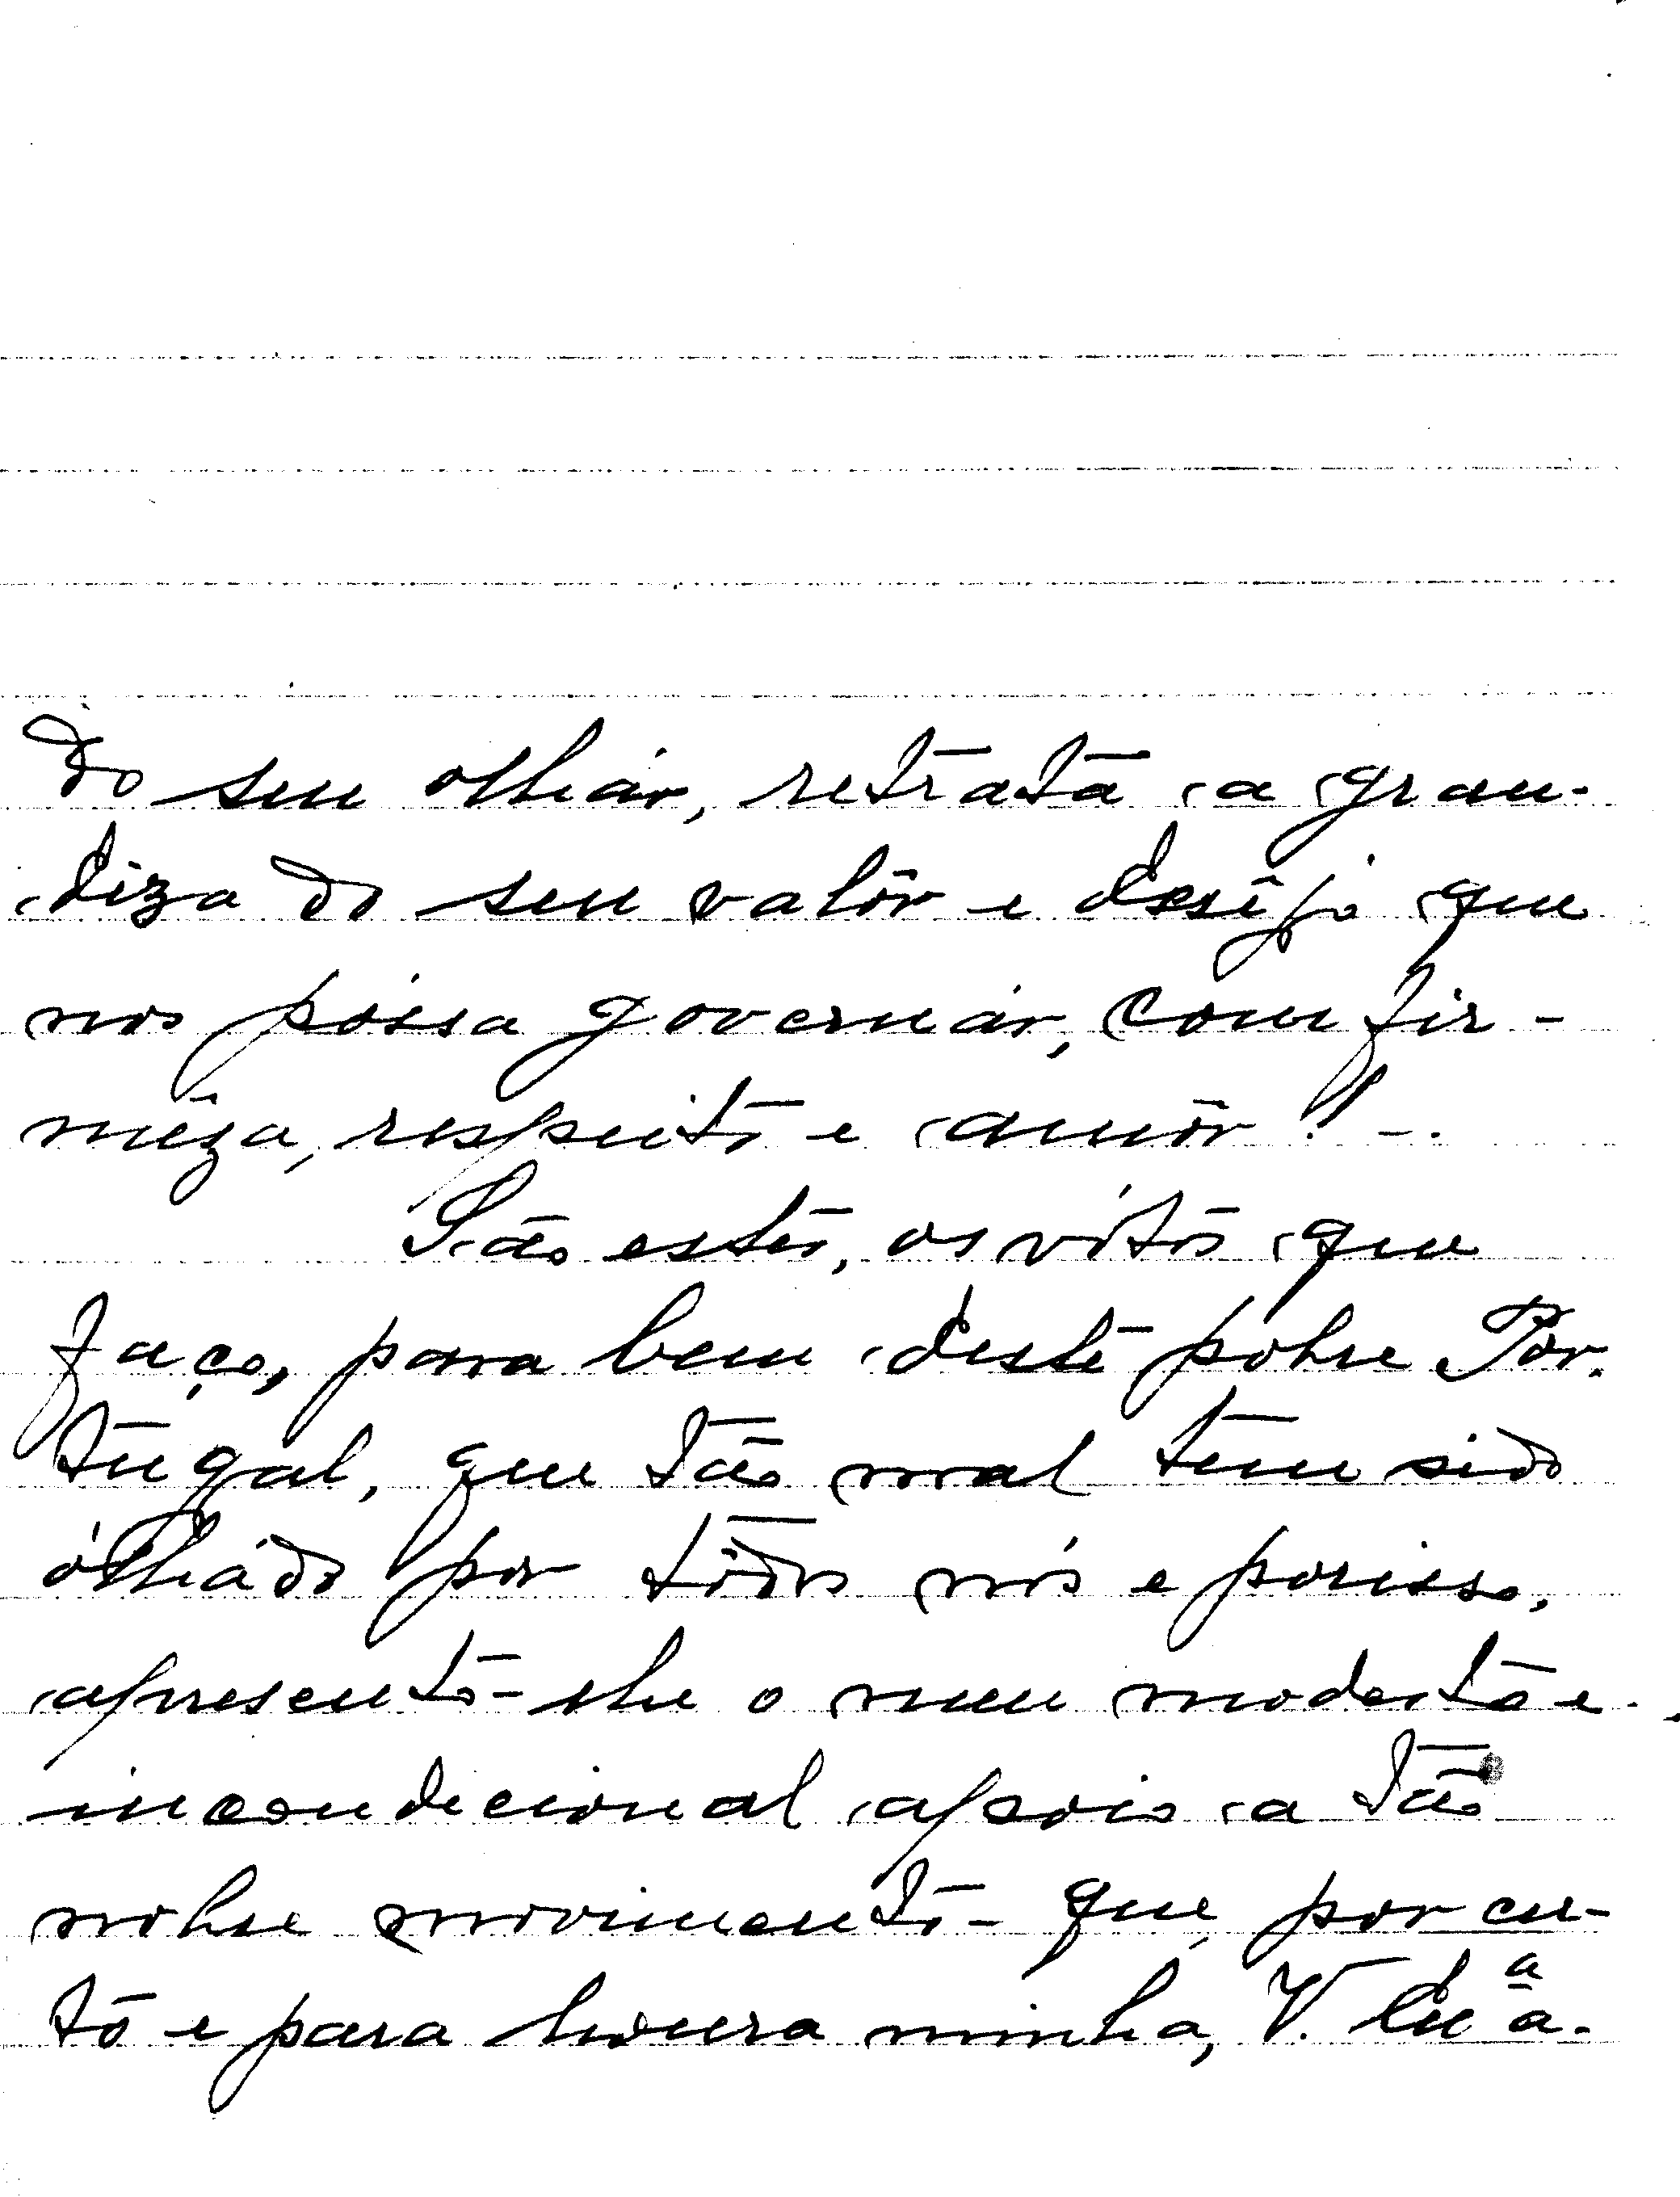 do seu olhár, retrata a gran-
diza do seu valôr e desêjo que
nos póssa governár, com fir-
mêza, respeito e amôr! -.
São estes, os vótos que
faço, para bem deste pobre Por-
tugal, que tão mal tem sido
ólhádo por tôdos nós e porisso,
apresento-lhe o meu modesto e
incondicional apoio a tão
nobre movimento - que, por cer-
to e para honra minha, V. Ex.ª a-